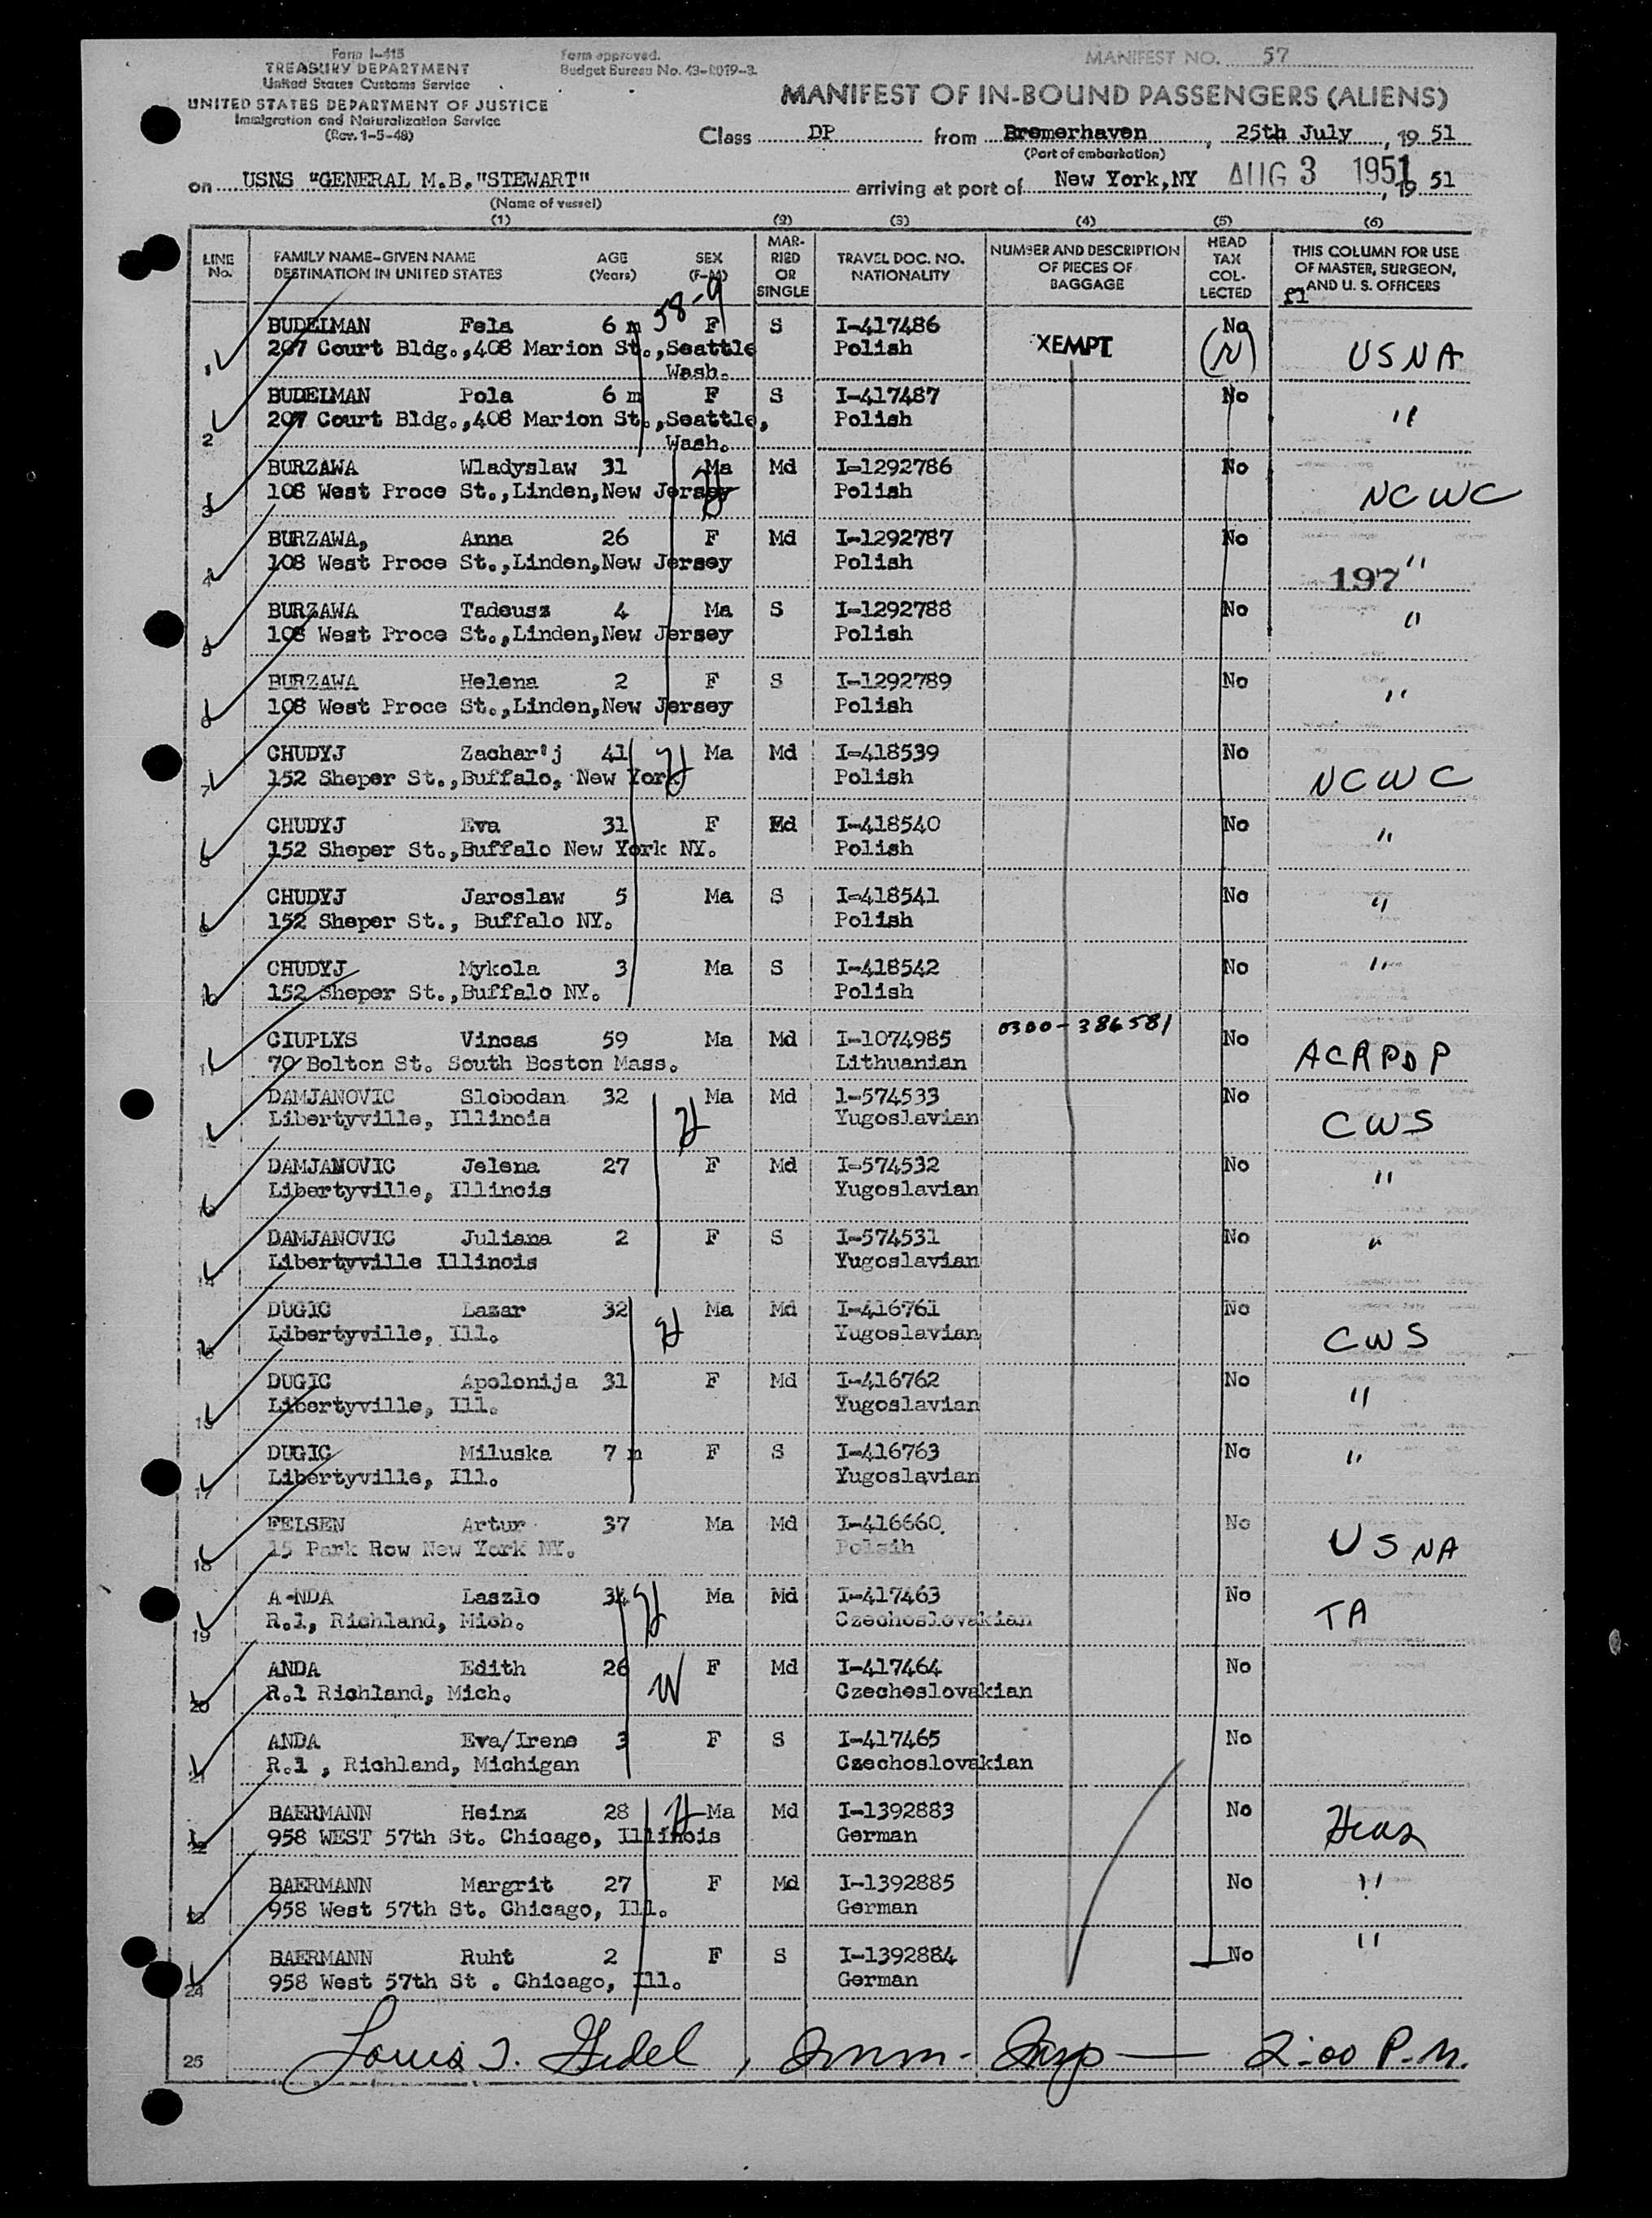 Form I-415
TREASURY DEPARTMENT
United States Customs Service
UNITED STATES DEPARTMENT OF JUSTICE
Immigration and Naturalization Service
(Rev. 1-5-48)
Form approved.
Budget Bureau No. 43-R019-3.
MANIFEST NO. 57
MANIFEST OF IN-BOUND PASSENGERS (ALIENS)
Class DP from Bremerhaven, 25th July, 19 51
(Port of embarkation)
on USNS "GENERAL M.B."STEWART" arriving at port of New York,NY AUG 3 1951, 19 51
(Name of vessel)
(1) (2) (3) (4) (5) (6)
LINE No. FAMILY NAME-GIVEN NAME DESTINATION IN UNITED STATES AGE (Years) SEX (F-M) MARRIED OR SINGLE TRAVEL DOC. NO. NATIONALITY NUMBER AND DESCRIPTION OF PIECES OF BAGGAGE HEAD TAX COLLECTED THIS COLUMN FOR USE OF MASTER, SURGEON, AND U. S. OFFICERS
58-9
1 BUDELMAN Fela 6 m F S I-417486 XEMPT No (N) USNA
207 Court Bldg.,408 Marion St.,Seattle Polish
Wash.
2 BUDELMAN Pola 6 m F S I-417487 No "
207 Court Bldg.,408 Marion St.,Seattle, Polish
Wash.
3 BURZAWA Wladyslaw 31 Ma Md I-1292786 No NCWC
108 West Proce St.,Linden,New Jersey Polish
4 BURZAWA, Anna 26 F Md I-1292787 No "
108 West Proce St.,Linden,New Jersey Polish 197
5 BURZAWA Tadeusz 4 Ma S I-1292788 No "
108 West Proce St.,Linden,New Jersey Polish
6 BURZAWA Helena 2 F S I-1292789 No "
108 West Proce St.,Linden,New Jersey Polish
7 CHUDYJ Zachar'j 41 Ma Md I-418539 No NCWC
152 Sheper St.,Buffalo, New York Polish
8 CHUDYJ Eva 31 F Md I-418540 No "
152 Sheper St.,Buffalo New York NY. Polish
9 CHUDYJ Jaroslaw 5 Ma S I-418541 No "
152 Sheper St., Buffalo NY. Polish
10 CHUDYJ Mykola 3 Ma S I-418542 No "
152 Sheper St.,Buffalo NY. Polish
11 CIUPLYS Vincas 59 Ma Md I-1074985 0300-386581 No ACRPDP
70 Bolton St. South Boston Mass. Lithuanian
12 DAMJANOVIC Slobodan 32 Ma Md 1-574533 No CWS
Libertyville, Illinois Yugoslavian
13 DAMJANOVIC Jelena 27 F Md I-574532 No "
Libertyville, Illinois Yugoslavian
14 DAMJANOVIC Juliana 2 F S I-574531 No "
Libertyville Illinois Yugoslavian
15 DUGIC Lazar 32 Ma Md I-416761 No CWS
Libertyville, Ill. Yugoslavian
16 DUGIC Apolonija 31 F Md I-416762 No "
Libertyville, Ill. Yugoslavian
17 DUGIC Miluska 7 m F S I-416763 No "
Libertyville, Ill. Yugoslavian
18 FELSEN Artur 37 Ma Md I-416660 No USNA
15 Park Row New York NY. Polsih
19 A-NDA Laszlo 34 Ma Md I-417463 No TA
R.1, Richland, Mich. Czechoslovakian
20 ANDA Edith 26 F Md I-417464 No
R.1 Richland, Mich. Czecheslovakian
21 ANDA Eva/Irene 3 F S I-417465 No
R.1 , Richland, Michigan Czechoslovakian
22 BAERMANN Heinz 28 Ma Md I-1392883 No Hias
958 WEST 57th St. Chicago, Illinois German
23 BAERMANN Margrit 27 F Md I-1392885 No "
958 West 57th St. Chicago, Ill. German
24 BAERMANN Ruht 2 F S I-1392884 No "
958 West 57th St . Chicago, Ill. German
25 Louis Gidel, Imm. Insp — 2:00 P.M.